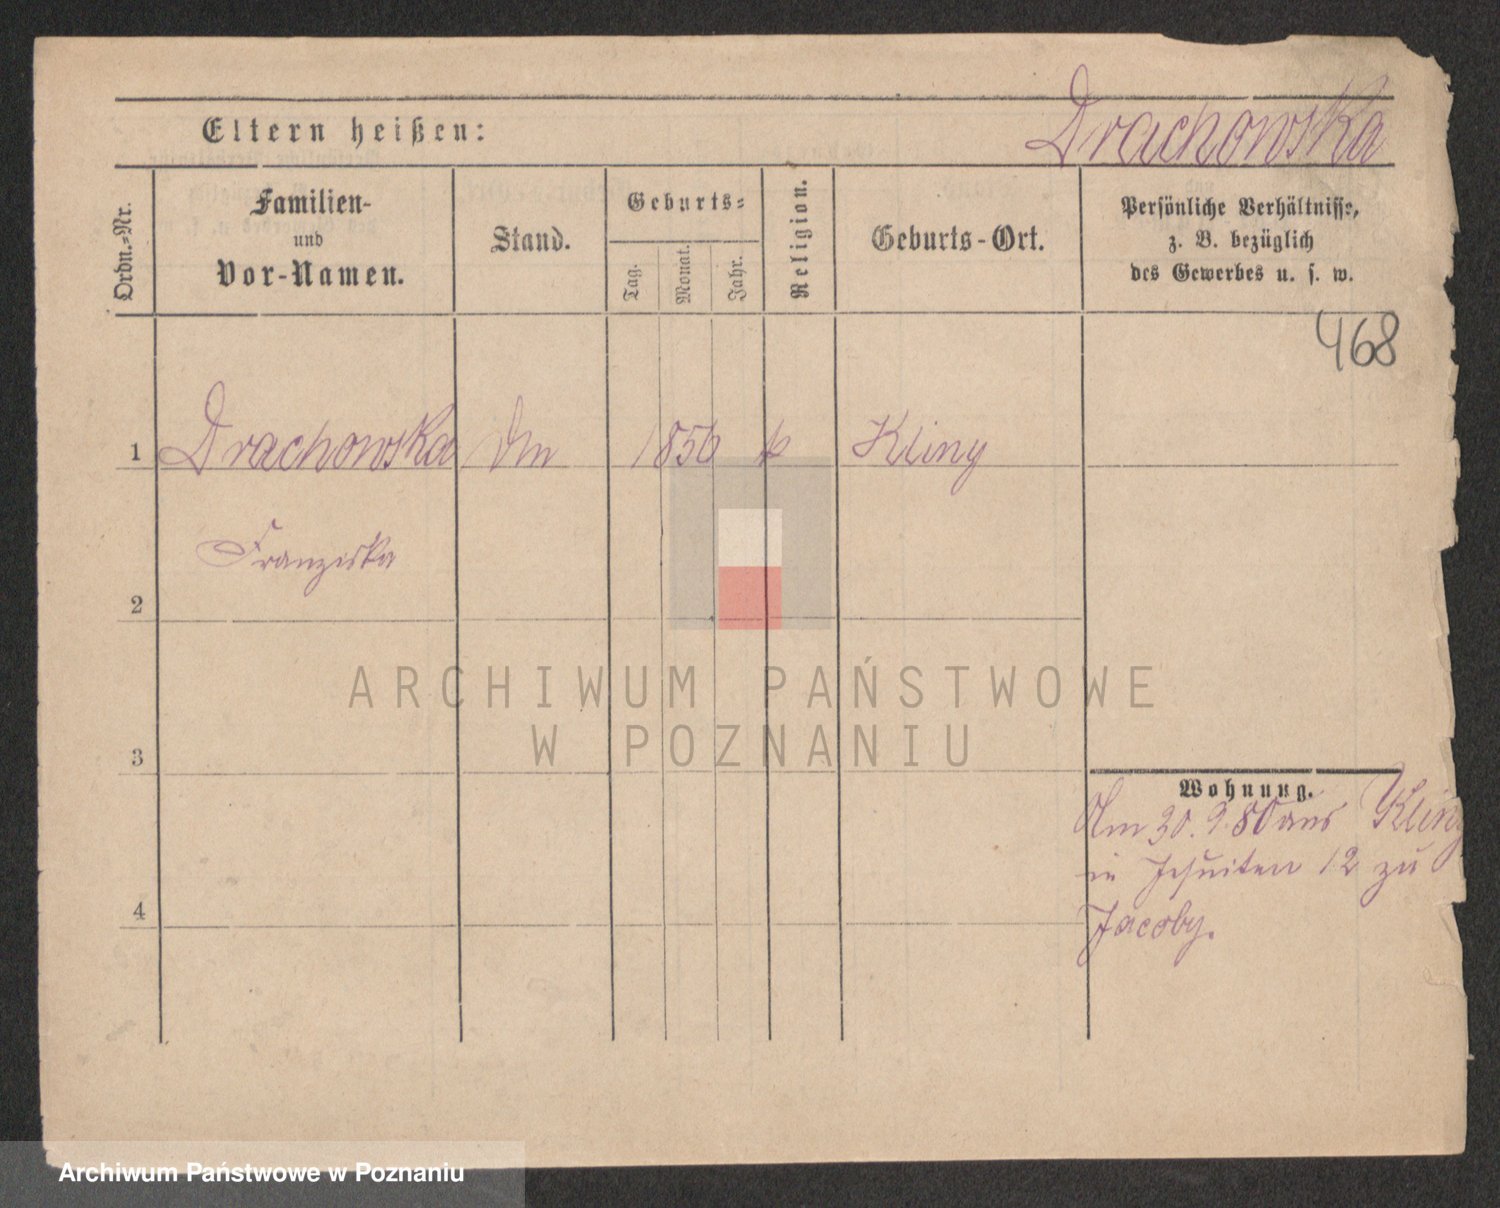 Drachowska
Eltern heißen:
Ordn.=Nr.
Familien-
und
Vor-Namen.
Stand.
Geburts=
Tag.
Monat.
Jahr.
Religion.
Geburts-Ort.
Persönliche Verhältnisse,
z. B. bezüglich
des Gewerbes u. s. w.
468
1 Drachowska 1856 k Kliny
Franziska
2
3
4
Wohnung.
Am 30. 9. 80 aus Kliny
in Jesuiten 12 zu
Jacoby.
ARCHIWUM PAŃSTWOWE
W POZNANIU
Archiwum Państwowe w Poznaniu